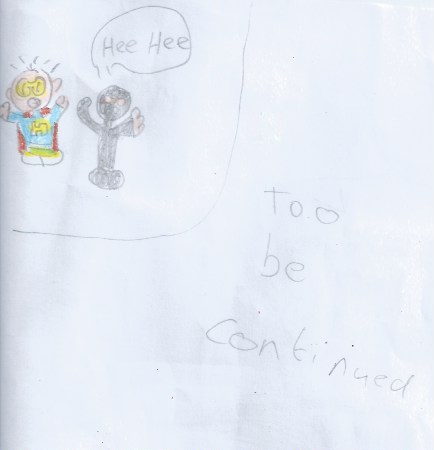 Hee Hee
H
Too
be
continued